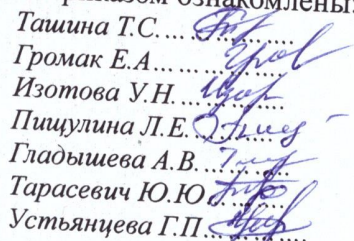 ознакомлены:
Ташина Т.С....
Громак Е.А........
Изотова У.Н.
Пищулина Л.Е.
Гладышева А.В.
Тарасевич Ю.Ю
Устьянцева Г.П